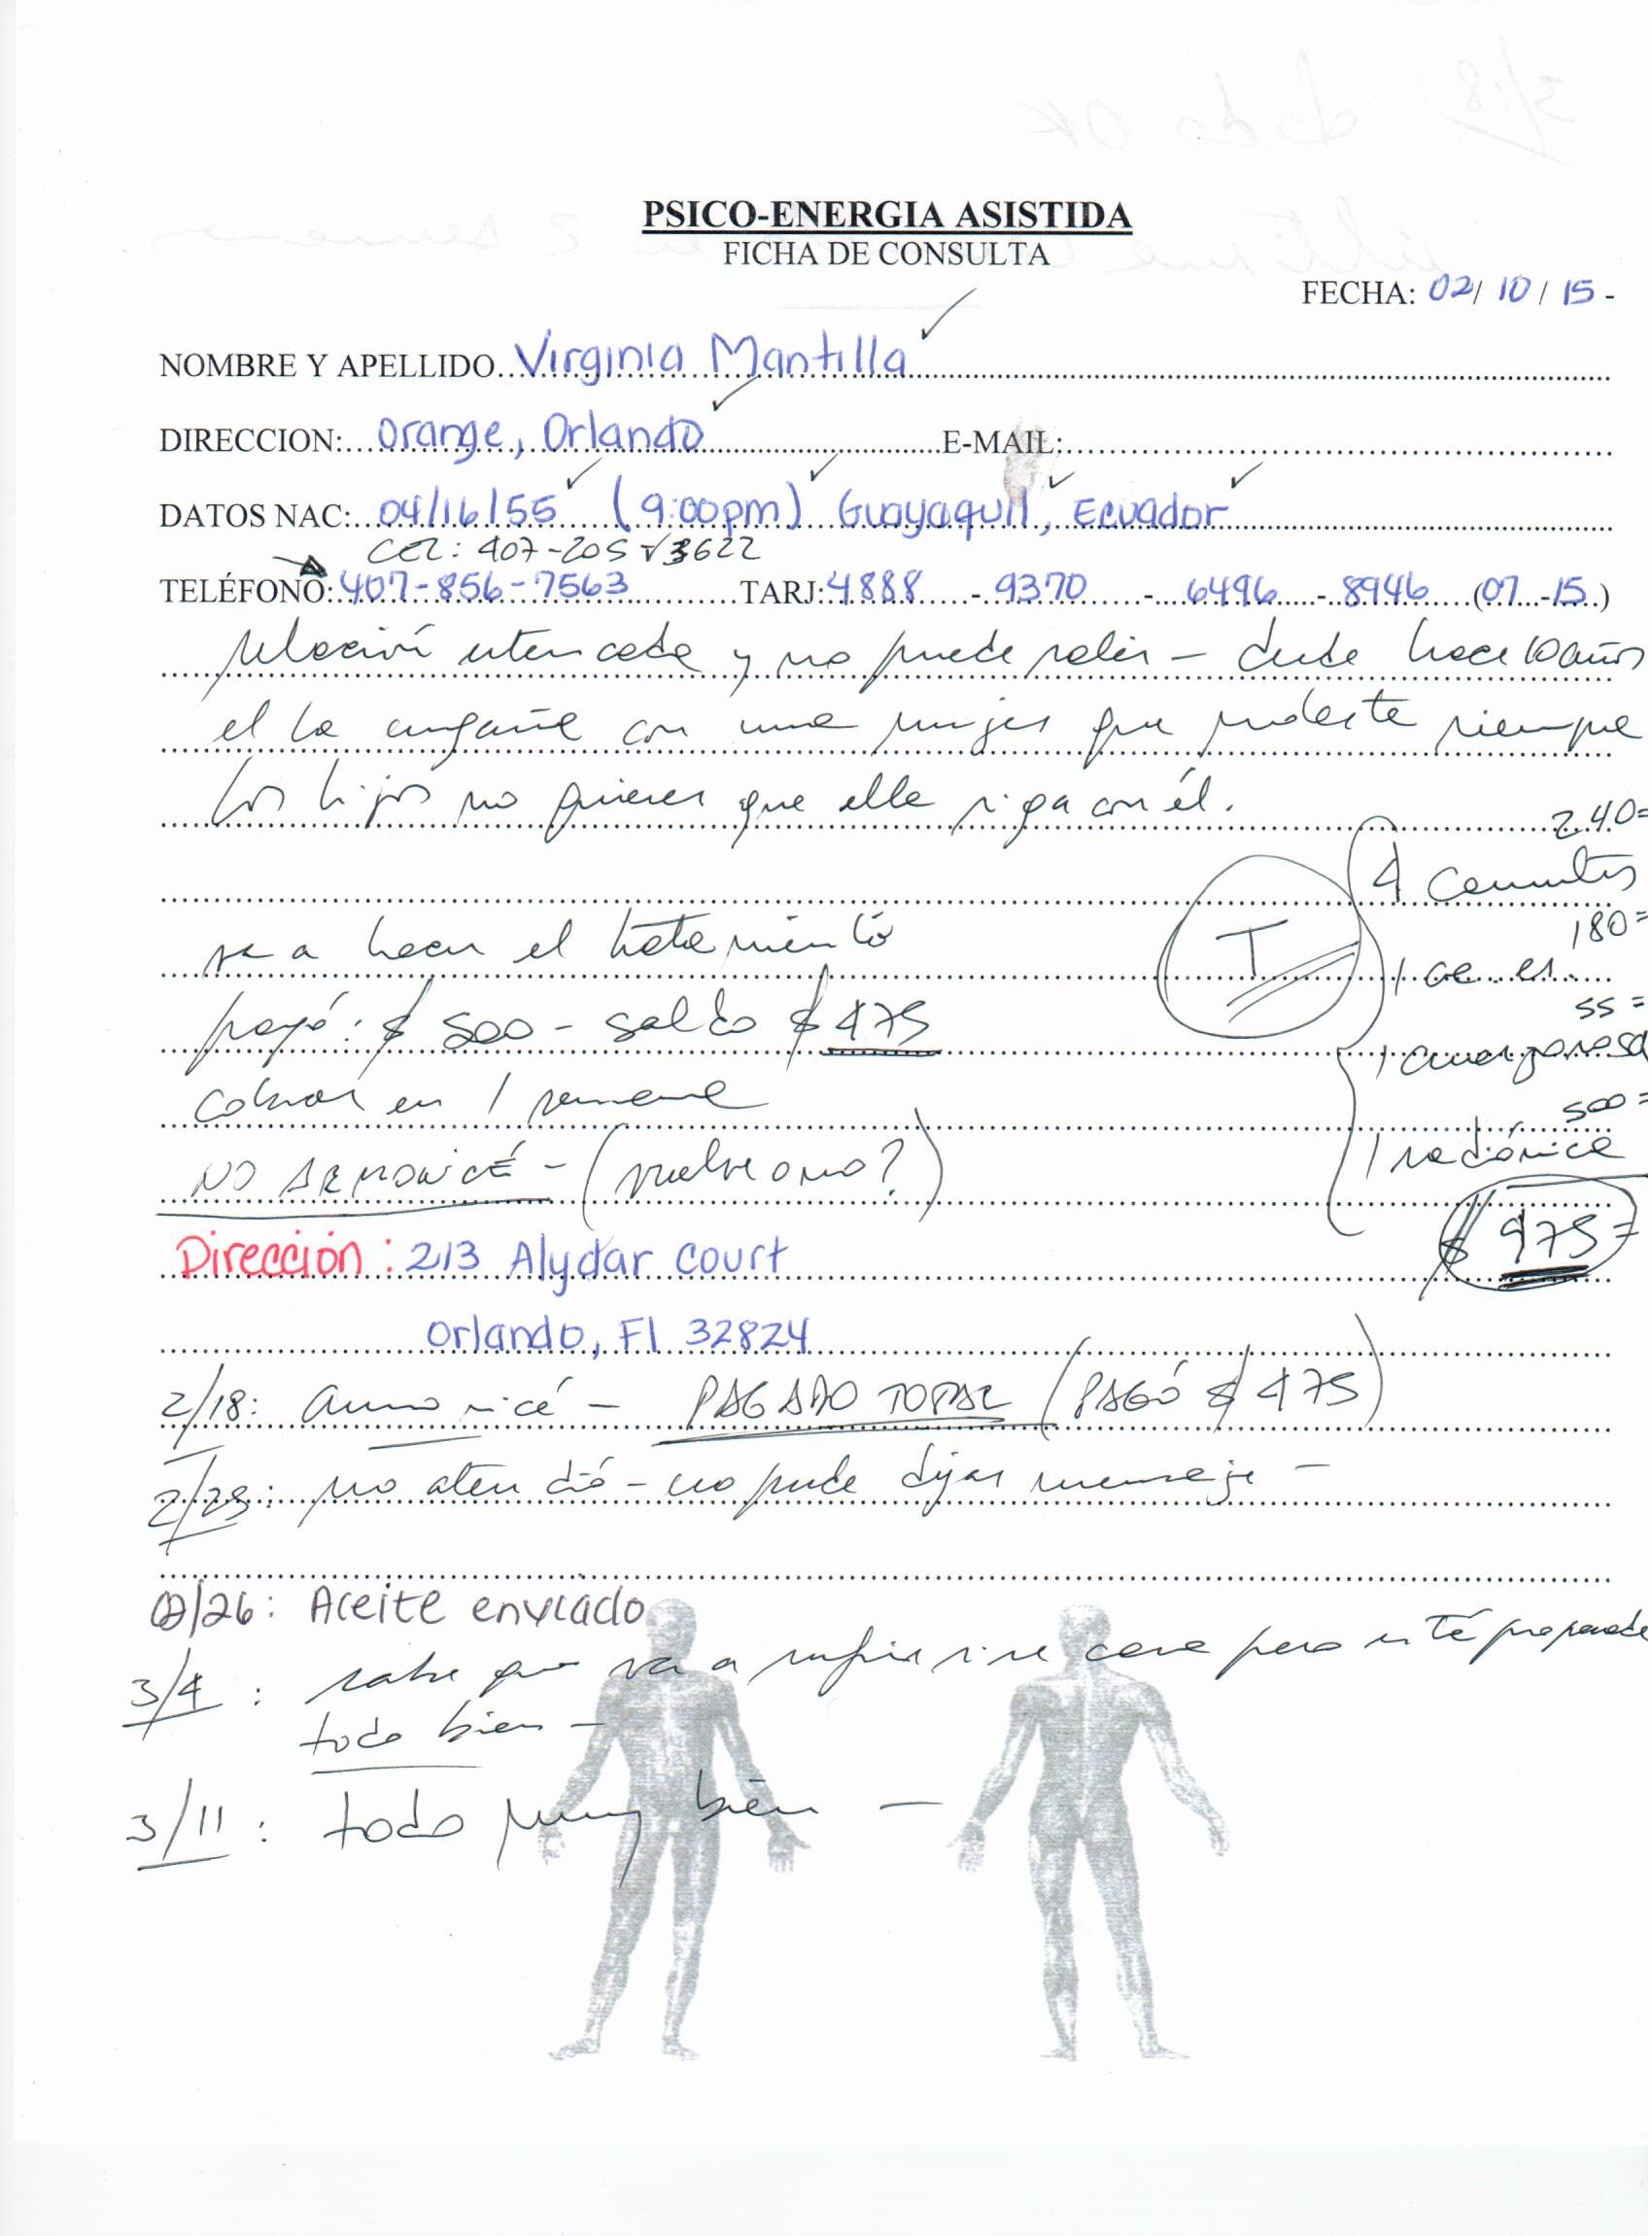 PSICO-ENERGIA ASISTIDA
FICHA DE CONSULTA
FECHA: 02/ 10 / 15 -
NOMBRE Y APELLIDO Virginia Mantilla
DIRECCION: Orange, Orlando E-MAIL:
DATOS NAC: 04/16/55 (9:00pm) Guayaquil, Ecuador
CEL: 407-205-3622
TELÉFONO: 407-856-7563 TARJ: 4888 - 9370 - 6496 - 8946 (07 -15)
relación y no puede salir - desde hace 10 años
el la engaña con una mujer que molesta siempre
los hijos no quieren que ella siga con él.
240=
4
180=
1
va a hacer el tratamiento
T
55=
pagó: $ 500 - saldo $ 475
1
500=
cobrar en 1 semana
1 radiónica
NO ARMONICÉ - (vuelve o no?)
$ 975=
Dirección: 213 Alydar Court
Orlando, Fl 32824
2/18: armonicé - PAGADO TOTAL (PAGÓ $ 475)
2/25: no atendió - no pude dejar mensaje -
02/26: Aceite enviado
3/4: sabe que va a sufrir si se pero está preparada
todo bien -
3/11: todo muy bien -